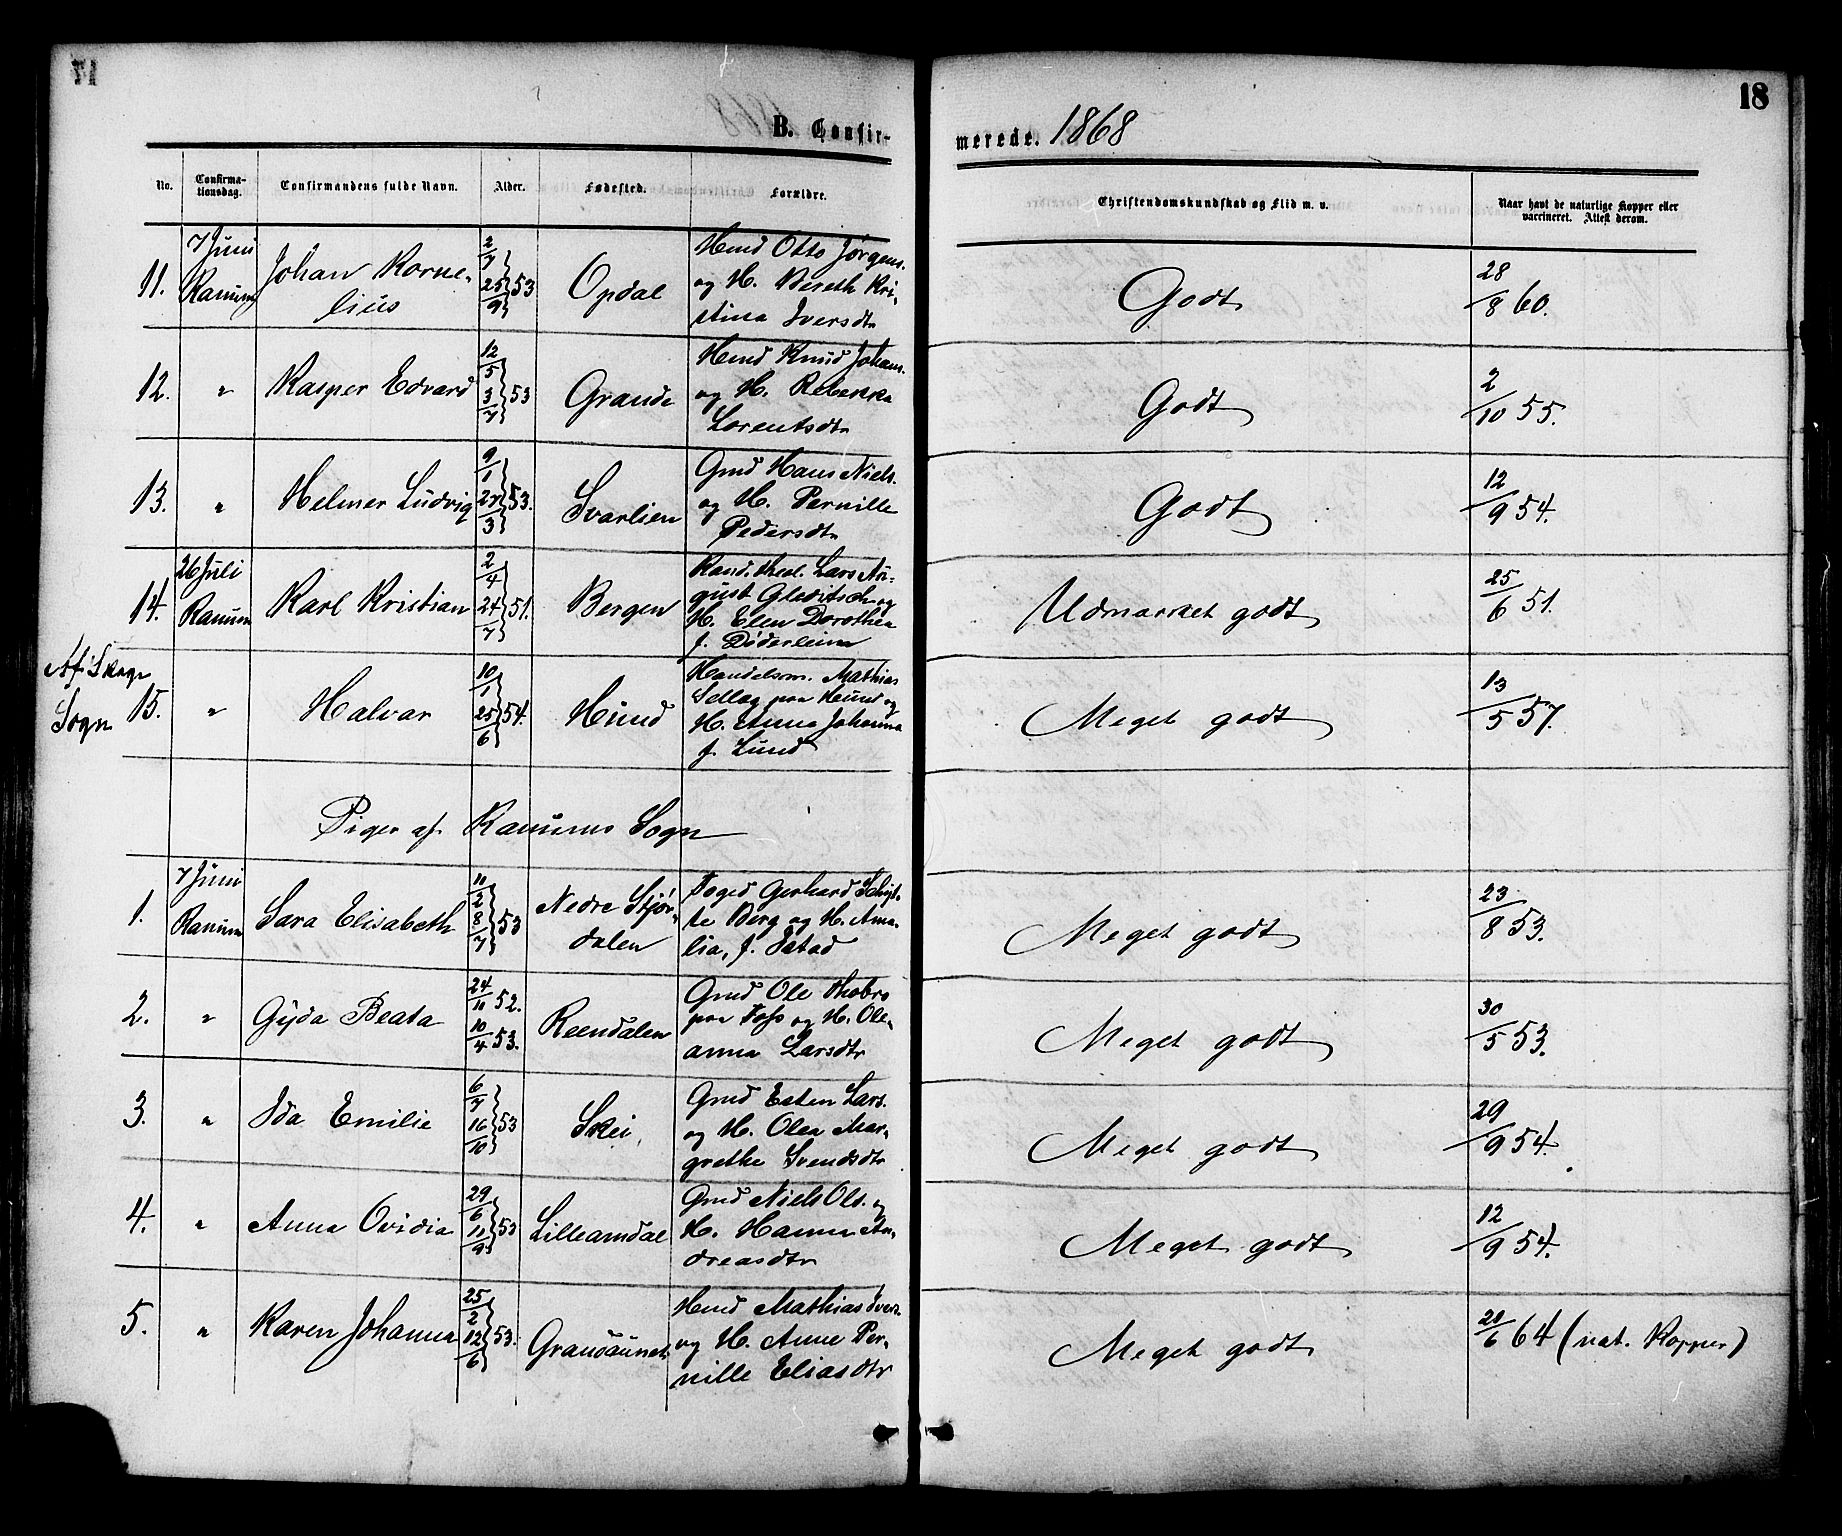 17
18
B. Confir-
merede. 1868
No.
Confirma-
tionsdag.
Confirmandens fulde Navn.
Alder.
Fødested.
Forældre.
Christendomskundskab og Flid m. v.
Naar havt de naturlige Kopper eller
vaccineret. Attest derom.
11. 7 Juni Ranum Johan Korne-
lius 2/7 25/9 53 Opdal Hmd Otto Jørgens.
og H. Bereth Kri-
stina Iversdtr Godt 28/8 60.
12. " Kasper Edvard 12/5 3/7 53 Grande Hmd Knud Johans.
og H. Rebekka
Lorentsdtr Godt 2/10 55.
13. " Helmer Ludvig 9/1 27/3 53. Svarlien Gmd Hans Niels.
og H. Pernille
Pedersdtr Godt 12/9 54.
14. 26 Juli Ranum Karl Kristian 2/4 24/7 51. Bergen Kand. theol. Lars Au-
gust Gleditsch og
H. Elen Dorothea
f. Døderlein Udmærket godt 25/6 51.
Af Skage
Sogn
15. " Halvar 10/1 25/6 54. Hund Handelsm. Mathias
Sellæg paa Hund og
H. Anna Johanna
f. Lund Meget godt 13/5 57.
Piger af Ranums Sogn
1. 7 Juni Ranum Sara Elisabeth 11/2 8/7 53 Nedre Stjør-
dalen Foged Gerhard Schøt-
te Berg og H. Ama-
lia, f. Estad Meget godt 23/8 53.
2. " Gyda Beata 24/11 52. 10/4 53. Reendalen Gmd Ole Thobro
paa Foss og H. Ole-
anna Larsdtr Meget godt 30/5 53.
3. " Ida Emilie 6/7 16/10 53 Skei, Gmd Esten Lars.
og H. Olea Mar-
grethe Svendsdtr Meget godt 29/9 54.
4. " Anna Ovidia 29/6 11/9 53 Lilleamdal Gmd Niels Ols. og
H. Hanna An-
dreasdtr Meget godt 12/9 54.
5. " Karen Johanna 25/2 12/6 53. Grandaunet Hmd Mathias Ivers.
og H. Anne Per-
nille Eliasdtr Meget godt 21/6 64 (nat. Kopper)